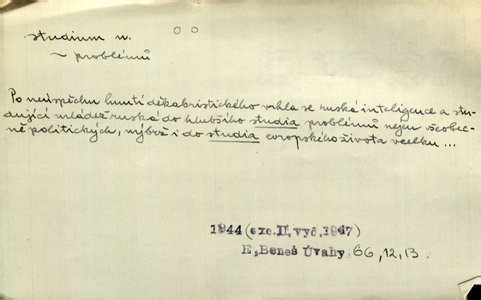 studium n.
~ problémů
Po neúspěchu hnutí děkabristického vrhla se ruská inteligence a stu-
dující mládež ruská do hlubšího studia problémů nejen všeobec-
ně politických, nýbrž i do studia evropského života vcelku ...
1944 (exc.II.vyd.1947)
E.Beneš Úvahy 66,12,13.